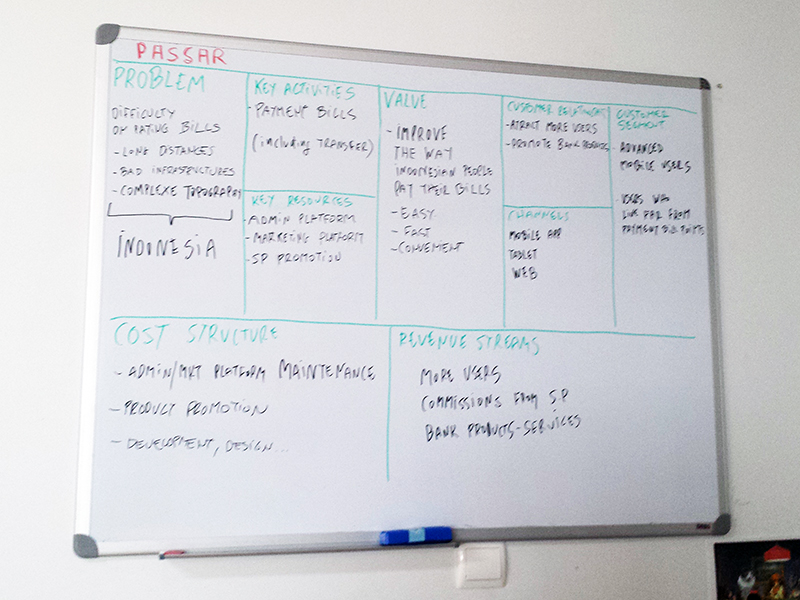 PASSAR
PROBLEM
DIFFICULTY
ON PAYING BILLS
- LONG DISTANCES
- BAD INFRASTRUCTURES
- COMPLEXE TOPOGRAPHY
INDONESIA
KEY ACTIVITIES
- PAYMENT BILLS
(including TRANSFER)
KEY RESOURCES
- ADMIN PLATFORM
- MARKETING PLATFORM
- SP PROMOTION
VALUE
- IMPROVE
THE WAY
INDONESIAN PEOPLE
PAY THEIR BILLS
- EASY
- FAST
- CONVEMENT
CUSTOMER RELATIONSHIPS
- ATRACT MORE USERS
- PROMOTE BANK PRODUCTS
CHANNELS
MOBILE APP
TABLET
WEB
CUSTOMER
SEGMENT
- ADVANCED
MOBILE USERS
- USERS WHO
LIVE FAR FROM
PAYMENT BILL POINTS
COST STRUCTURE
- ADMIN/MKT PLATFORM MAINTENANCE
- PRODUCT PROMOTION
- DEVELOPMENT, DESIGN...
REVENUE STREAMS
MORE USERS
COMMISSIONS FROM S.P
BANK PRODUCTS-SERVICES